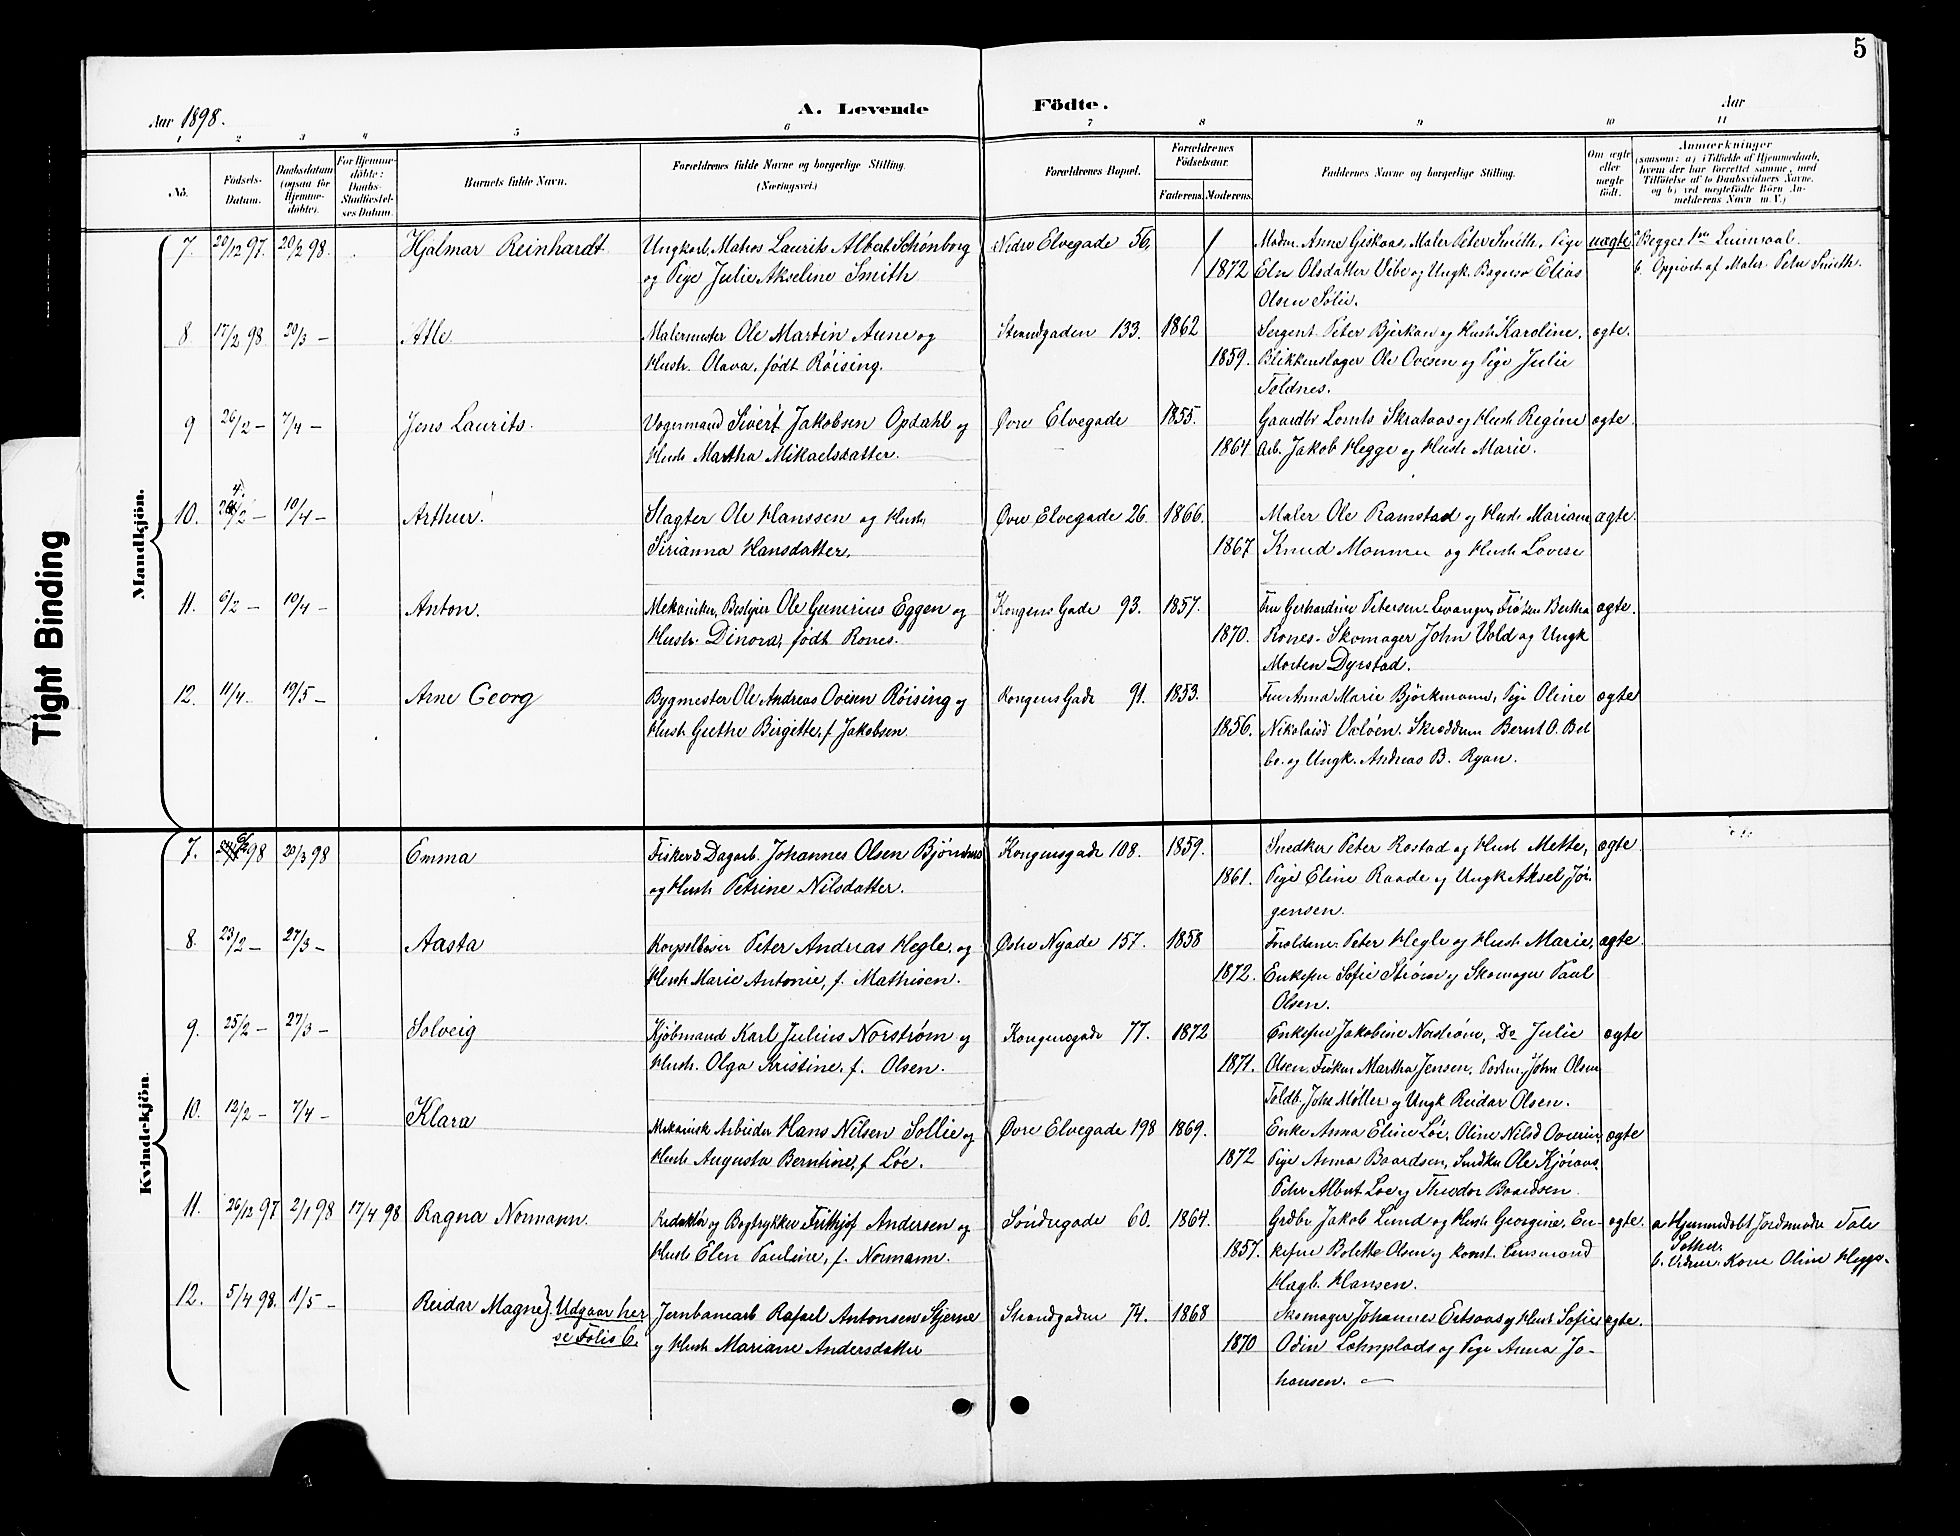 5
Aar 1898.
A. Levende Födte.
Aar
1 2 3 4 5 6 7 8 9 10 11
No.
Födsels-Datum.
Daabsdatum (ogsaa for Hjemme-döbte).
For Hjemme-döbte: Daabs-Stadfæstel-ses Datum.
Barnets fulde Navn.
Forældrenes fulde Navne og borgerlige Stilling. (Næringsvei.)
Forældrenes Bopæl.
Forældrenes Födselsaar.
Faderens. Moderens.
Faddernes Navne og borgerlige Stilling.
Om ægte eller uægte födt.
Anmærkninger
(saasom: a) i Tilfælde af Hjemmedaab,
hvem der har forrettet samme, med
Tilföielse af to Daabsvidners Navne,
og b) ved uægtefödte Börn An-
melderens Navn m. V.)
Mandkjön.
7. 20/12 97. 20/2 98. Hjalmar Reinhardt. Ungkarl, Matros Laurits Albert Schönberg Nedre Elvegade 56. Maler Peter Smith, Pige uægte Begges 1ste Leiermaal.
og Pige Julie Akseline Smith 1872 Elen Olsdatter Vibe og Ungk. Elias b. Opgivet af Maler Peter Smith.
Olsen Sölie.
8 17/2 98. 20/3 — Atle Malermester Ole Martin Aune og Strandgaden 133. 1862 Sergent Peter Bjerkan og Hustr. Karoline, ægte.
Hustr. Olava, født Røising. 1859. Blikkenslager Ole Ovesen og Pige Julie
Toldnes.
9 26/2 — 7/4 — Jens Laurits. Vognmand Sivert Jakobsen Opdahl og Øvre Elvegade 1855. Gaardbr. Lornts Skrataas og Hustr. Regine ægte.
Hustr. Martha Mikaelsdatter. 1864 Arb. Jakob Hegge og Hustr. Marie.
10. 10/4 — Arthur. Slagter Ole Hanssen og Hustr. Øvre Elvegade 26. 1866. Maler Ole Ramstad og Hustr. Mariane ægte.
Sirianna Hansdatter. 1867 Knud og Hustr. Lovise
11. 6/2 — 10/4 — Anton. Mekaniker, Bestyrer Ole Gunerius Eggen og Kongens Gade 93. 1857. Fru Gerhardine Petersen, Levanger, Frøken Bertha ægte.
Hustr. Dinora, født Rones. 1870. Rones. Skomager John Vold og Ungk.
Morten Dyrstad.
12. 11/4. 19/5 — Arne Georg Bygmester Ole Andreas Ovesen Røising og Kongens Gade 91. 1853. Fru Anna Marie Bjørkmann, Pige Oline ægte
Hustr. Grethe Birgitte, f. Jakobsen 1856. Nikolaisd. Valöen. Skrædderm. Bernt O. Bol-
bo. og Ungk. Andreas B. Ryan.
Kvindekjön.
7. 98 20/3 98 Emma Fisker & Dagarb. Johannes Olsen Kongensgade 108. 1859. Snedker Peter Rostad og Hustr. Mette, ægte
og Hustr. Petrine Nilsdatter. 1861. Pige Eline Raade og Ungk. Aksel Jör-
gensen.
8. 23/2 — 27/3 — Aasta Peter Andreas Hegle og Østre Nygade 157. 1858 Peter Hegle og Hustr. Marie, ægte.
Hustr. Marie Antonie, f. Mathisen. 1872. Enkefru Sofie Strøm og Skomager Paul
Olsen.
9. 25/2 — 27/3 — Solveig Kjöbmand Karl Julius Norström og Kongensgade 77. 1872 Enkefru Jakobine Norström, Do Julie ægte
Hustr. Olga Kristine, f. Olsen. 1871. Olsen, Frøken Martha Jensen, John Olsen
Toldb. Møller og Ungk. Reidar Olsen.
10. 12/2 — 7/4 — Klara Mekanisk Arbeider Hans Nilsen Sollie og Øvre Elvegade 198 1869. Enke Anna Eline Löe, Oline Nilsd. ægte
Hustr. Augusta Berntine, f. Löe. 1872 Pige Anna Baardsen, Snedker Ole
Peter Albert Loe og Theodor Baardsen.
11. 26/12 97 2/1 98 17/4 98 Ragna Normann. Redaktör og Bogtrykker Frithjof Andersen og Söndregade 60. 1864. Grdbr. Jakob Lund og Hustr. Georgine, En- ægte. a Hjemmedöbt Jordmoder
Hustr. Elen Pauline, f. Normann. 1857. kefru Bolette Olsen og b. Kone Oline
Hagb. Hansen.
12. 5/4 98. 1/5 — Reidar Magne} Udgaar her Jernbanearb. Rafael Antonsen Stjerne Strandgaden 74. 1868 Skomager Johannes og Hustr. Sofie ægte.
se Folio 6. og Hustr. Mariane Andersdatter 1870 Odin og Pige Anna Jo-
hansen. —
Tight Binding